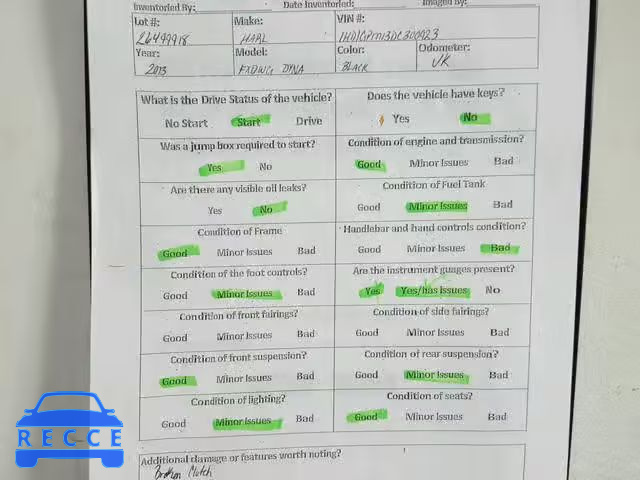 Inventoried By: Date Inventoried: Imaged By:
Lot #: Make: VIN #:
26499918 HARL
Year: Model: Color: Odometer:
2013 FXDWG DYNA BLACK UK
What is the Drive Status of the vehicle? Does the vehicle have keys?
No Start Start Drive Yes No
Was a jump box required to start? Condition of engine and transmission?
Yes No Good Minor Issues Bad
Are there any visible oil leaks? Condition of Fuel Tank
Yes No Good Minor Issues Bad
Condition of Frame Handlebar and hand controls condition?
Good Minor Issues Bad Good Minor Issues Bad
Condition of the foot controls? Are the instrument guages present?
Good Minor Issues Bad Yes Yes/has Issues No
Condition of front fairings? Condition of side fairings?
Good Minor Issues Bad Good Minor Issues Bad
Condition of front suspension? Condition of rear suspension?
Good Minor Issues Bad Good Minor Issues Bad
Condition of lighting? Condition of seats?
Good Minor Issues Bad Good Minor Issues Bad
Additional damage or features worth noting?
Broken Clutch
RECCE